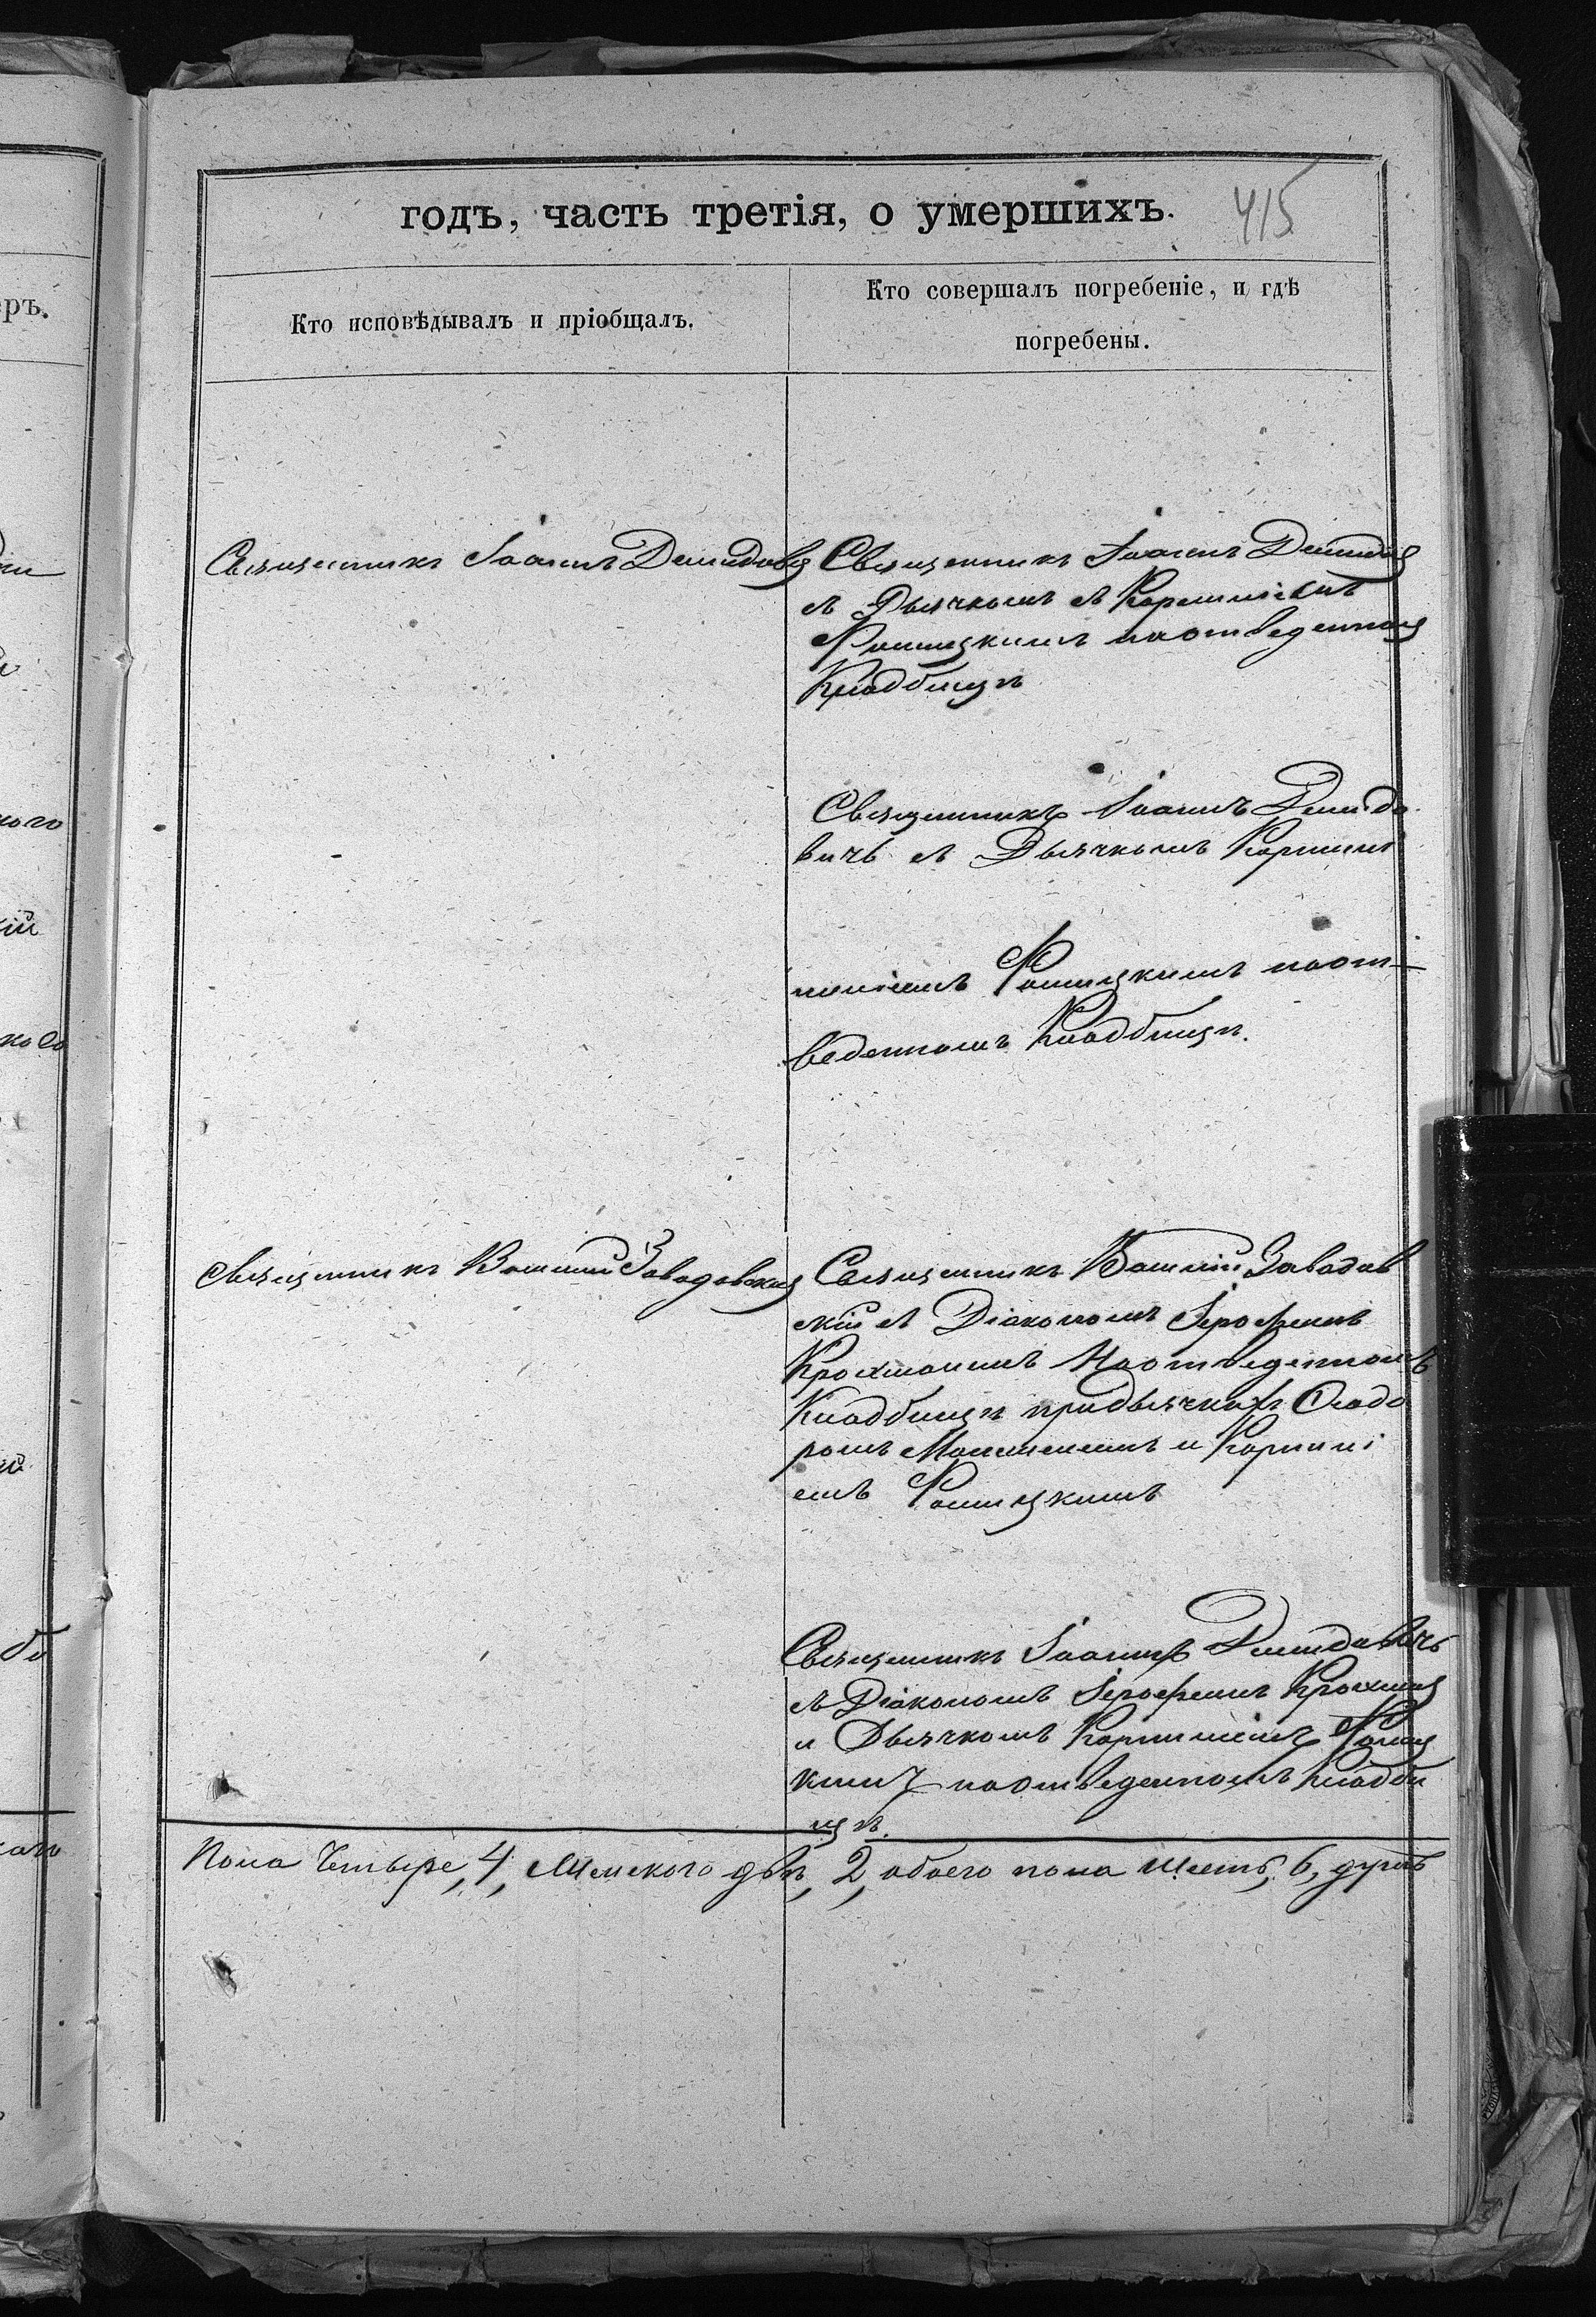 годъ, часть третія, о умершихъ.
415
еръ.
Кто исповѣдывалъ и пріобщалъ.
Кто совершалъ погребеніе, и гдѣ
погребены.
Священникъ Іоаннъ Демидов
Священникъ Іоаннъ Демидов
съ Дьячкомъ съ Корниліемъ
наотведенном
Кладбищѣ
Священникъ Іоаннъ Демидо
вичъ съ Дьячкомъ Корнил
наот-
веденномъ Кладбищѣ.
Священникъ Василій Заводовский
Священникъ Василій Заводов
скій съ Діакономъ Іероѳеемъ
Наотведенномъ
Кладбищѣ придьячкахъ
ромъ и Корнилі
емъ
Священникъ Іоаннъ Демидовичъ
съ Діакономъ Іероѳеемъ
и Дьячкомъ Корниліемъ
кимъ наотведенномъ Кладби
щѣ.
Пола Четыре, 4, Женского двѣ, 2, обоего пола Шесть, 6, душъ